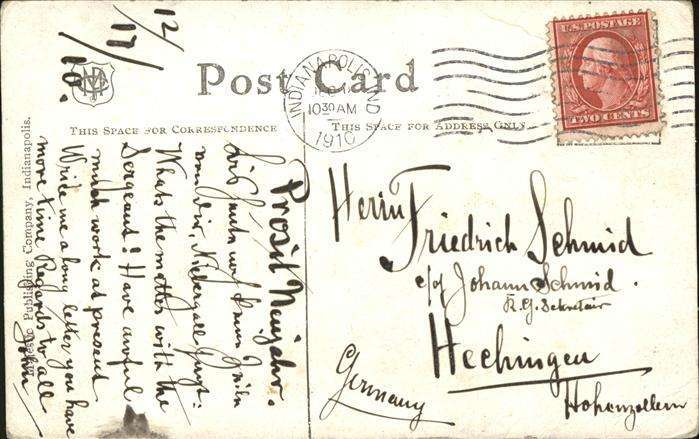 12/17/10.
Post Card
THIS SPACE FOR CORRESPONDENCE
THIS SPACE FOR ADDRESS ONLY
INDIANAPOLIS, IND.
10 30 AM
1910
U.S. POSTAGE
TWO CENTS
Majestic Publishing Company, Indianapolis.
Prosit Neujahr.
Bis heute noch keinen
von dir
Whats the matter with the
Sergeant? Have awful
much work at present
Write me a long letter you have
more time Regards to all
Herrn
Friedrich Schmid
c/o Johann Schmid.
K.G. Sekretair
Hechingen
Germany
Hohenzollern